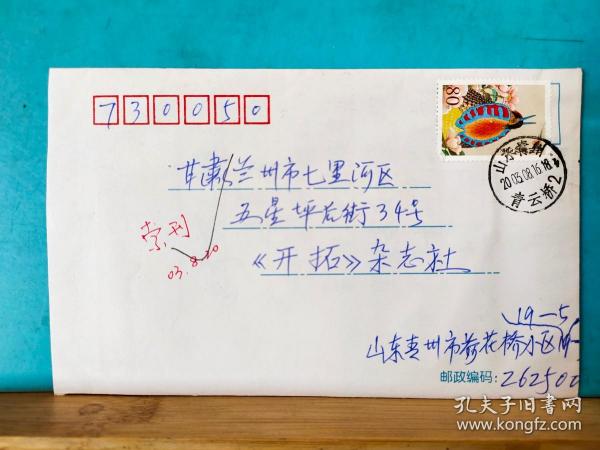 730050
80
山东青州
2003.08.16.18
青云桥2
甘肃兰州市七里河区
五星坪后街34号
《开拓》杂志社
索刊
03.8.20
19-5
山东青州市荷花桥小区
邮政编码：262500
孔夫子旧书网
www.kongfz.com